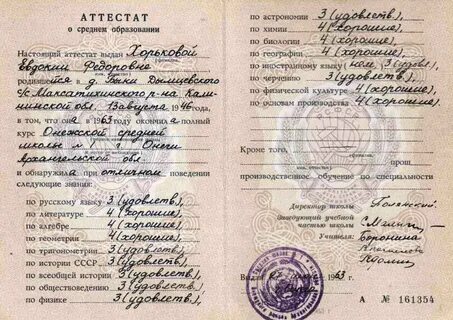 АТТЕСТАТ
о среднем образовании
Настоящий аттестат выдан Хорьковой
Евдокии Федоровне
родившейся в д. Быки Дымцевского
с/с Максатихинского р-на Кали-
нинской обл. 13 августа 1946 года,
в том, что она в 1963 году окончила полный
курс Онежской средней
школы № 1 г. Онеги
Архангельской обл.
и обнаружила при отличном поведении
следующие знания:
по русскому языку 3 (удовлетв),
по литературе 4 (хорошие),
по алгебре 4 (хорошие),
по геометрии 4 (хорошие),
по тригонометрии 3 (удовлетв),
по истории СССР 3 (удовлетв),
по всеобщей истории 3 (удовлетв),
по обществоведению 3 (удовлетв),
по физике 3 (удовлетв),
по астрономии 3 (удовлетв),
по химии 4 (хорошие),
по биологии 4 (хорошие),
по географии 4 (хорошие),
по иностранному языку (нем. 3 (удовл.),
по черчению 3 (удовлетв),
по физической культуре 4 (хорошие),
по основам производства 4 (хорошие),
Кроме того,
прош
производственное обучение по специальности
Директор школы
Заведующий учебной
частью школы
Учителя: Воронина
Выдан 1963
А № 161354